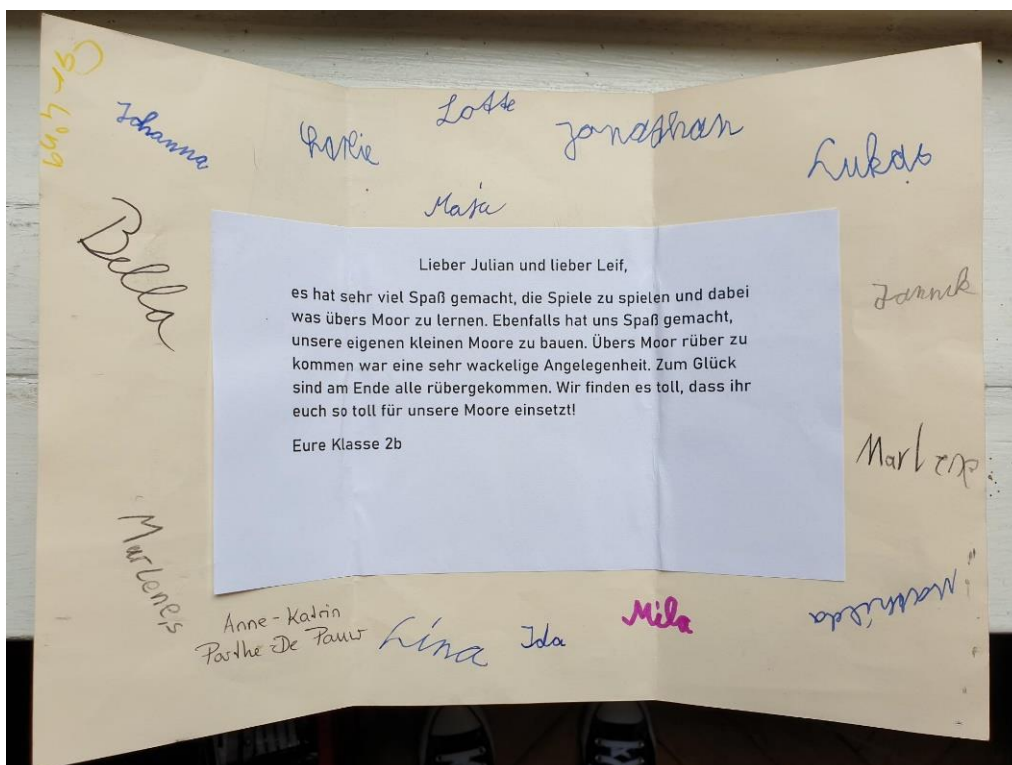 Johanna
Charlie
Lotte
Jonathan
Lukas
Maja
Bella
Lieber Julian und lieber Leif,
es hat sehr viel Spaß gemacht, die Spiele zu spielen und dabei
was übers Moor zu lernen. Ebenfalls hat uns Spaß gemacht,
unsere eigenen kleinen Moore zu bauen. Übers Moor rüber zu
kommen war eine sehr wackelige Angelegenheit. Zum Glück
sind am Ende alle rübergekommen. Wir finden es toll, dass ihr
euch so toll für unsere Moore einsetzt!
Eure Klasse 2b
Jannik
Marlene,s
Mathilda
Anne-Katrin
Parthe De Pauw
Lina
Ida
Mila